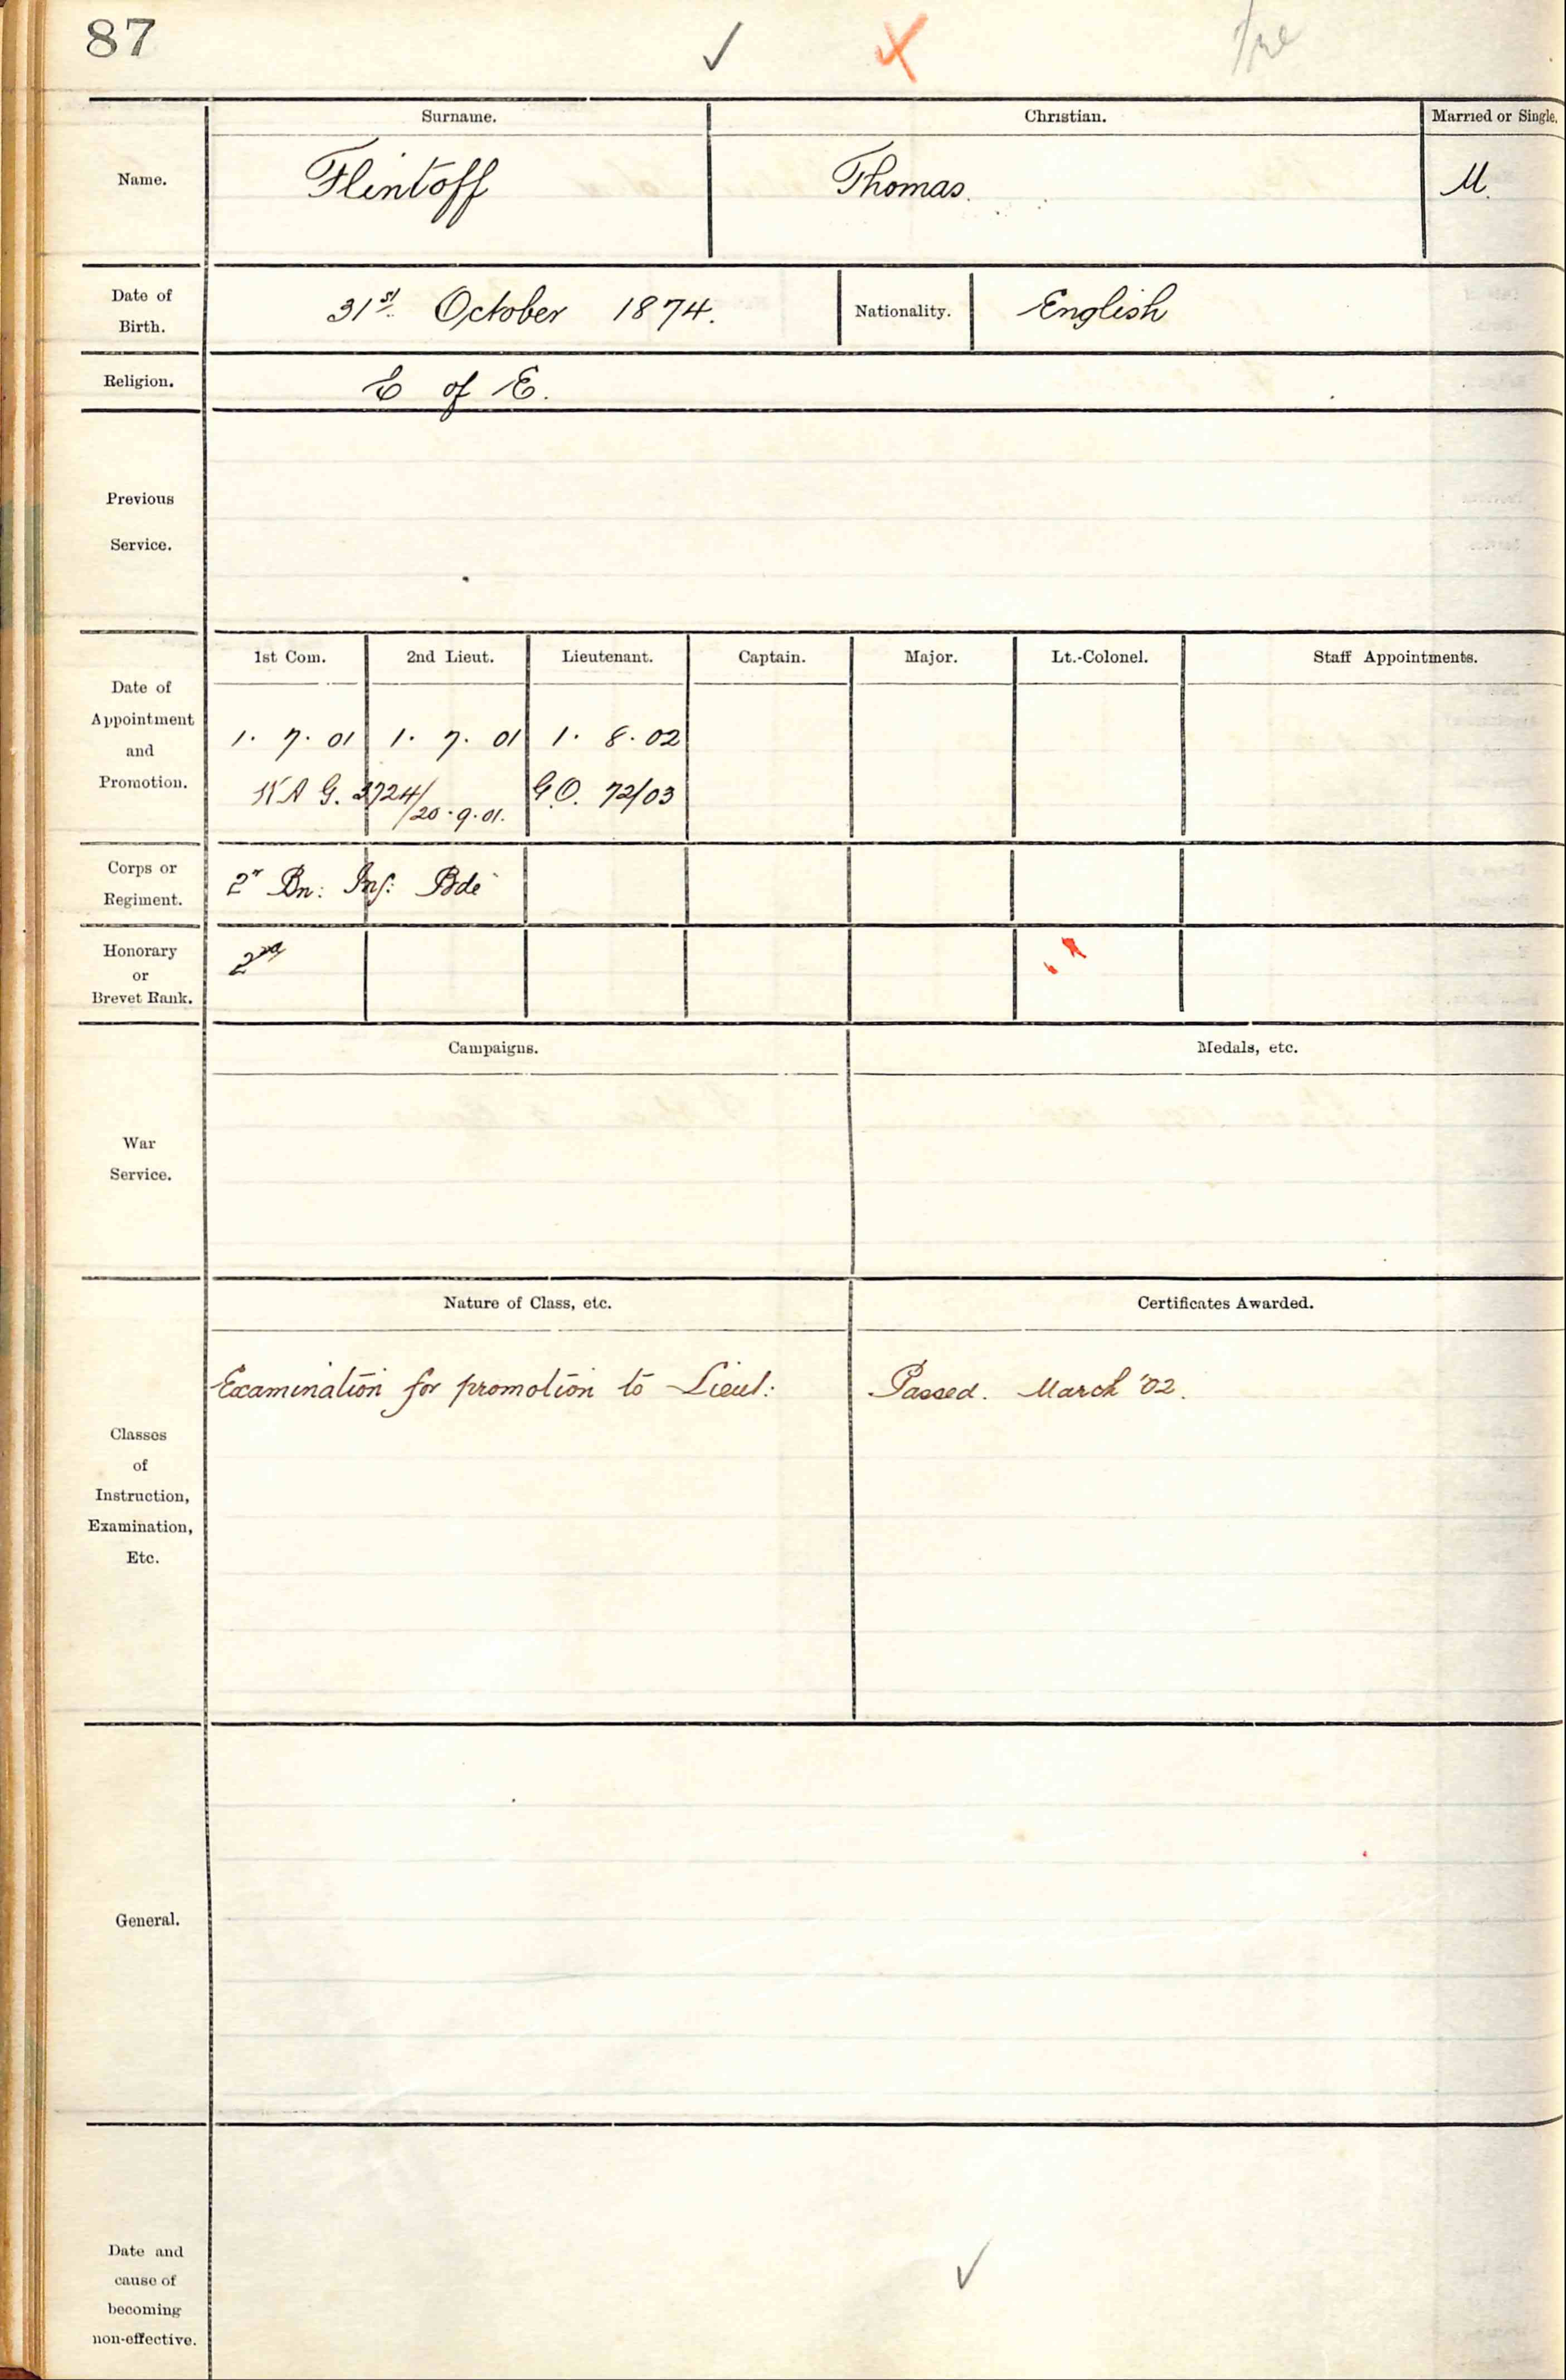 87
Surname. Christian. Married or Single.
Name. Flintoff Thomas. M.
Date of Birth. 31st. October 1874. Nationality. English
Religion. C of E.
Previous Service.
1st Com. 2nd Lieut. Lieutenant. Captain. Major. Lt.-Colonel. Staff Appointments.
Date of Appointment and Promotion.
1. 7. 01 1. 7. 01 1. 8. 02
A G. 3724/20.9.01. G.O. 72/03
Corps or Regiment. 2nd Bn: Inf: Bde
Honorary or Brevet Rank. 2nd
Campaigns. Medals, etc.
War Service.
Nature of Class, etc. Certificates Awarded.
Examination for promotion to Lieut: Passed. March '02.
Classes of Instruction, Examination, Etc.
General.
Date and cause of becoming non-effective.